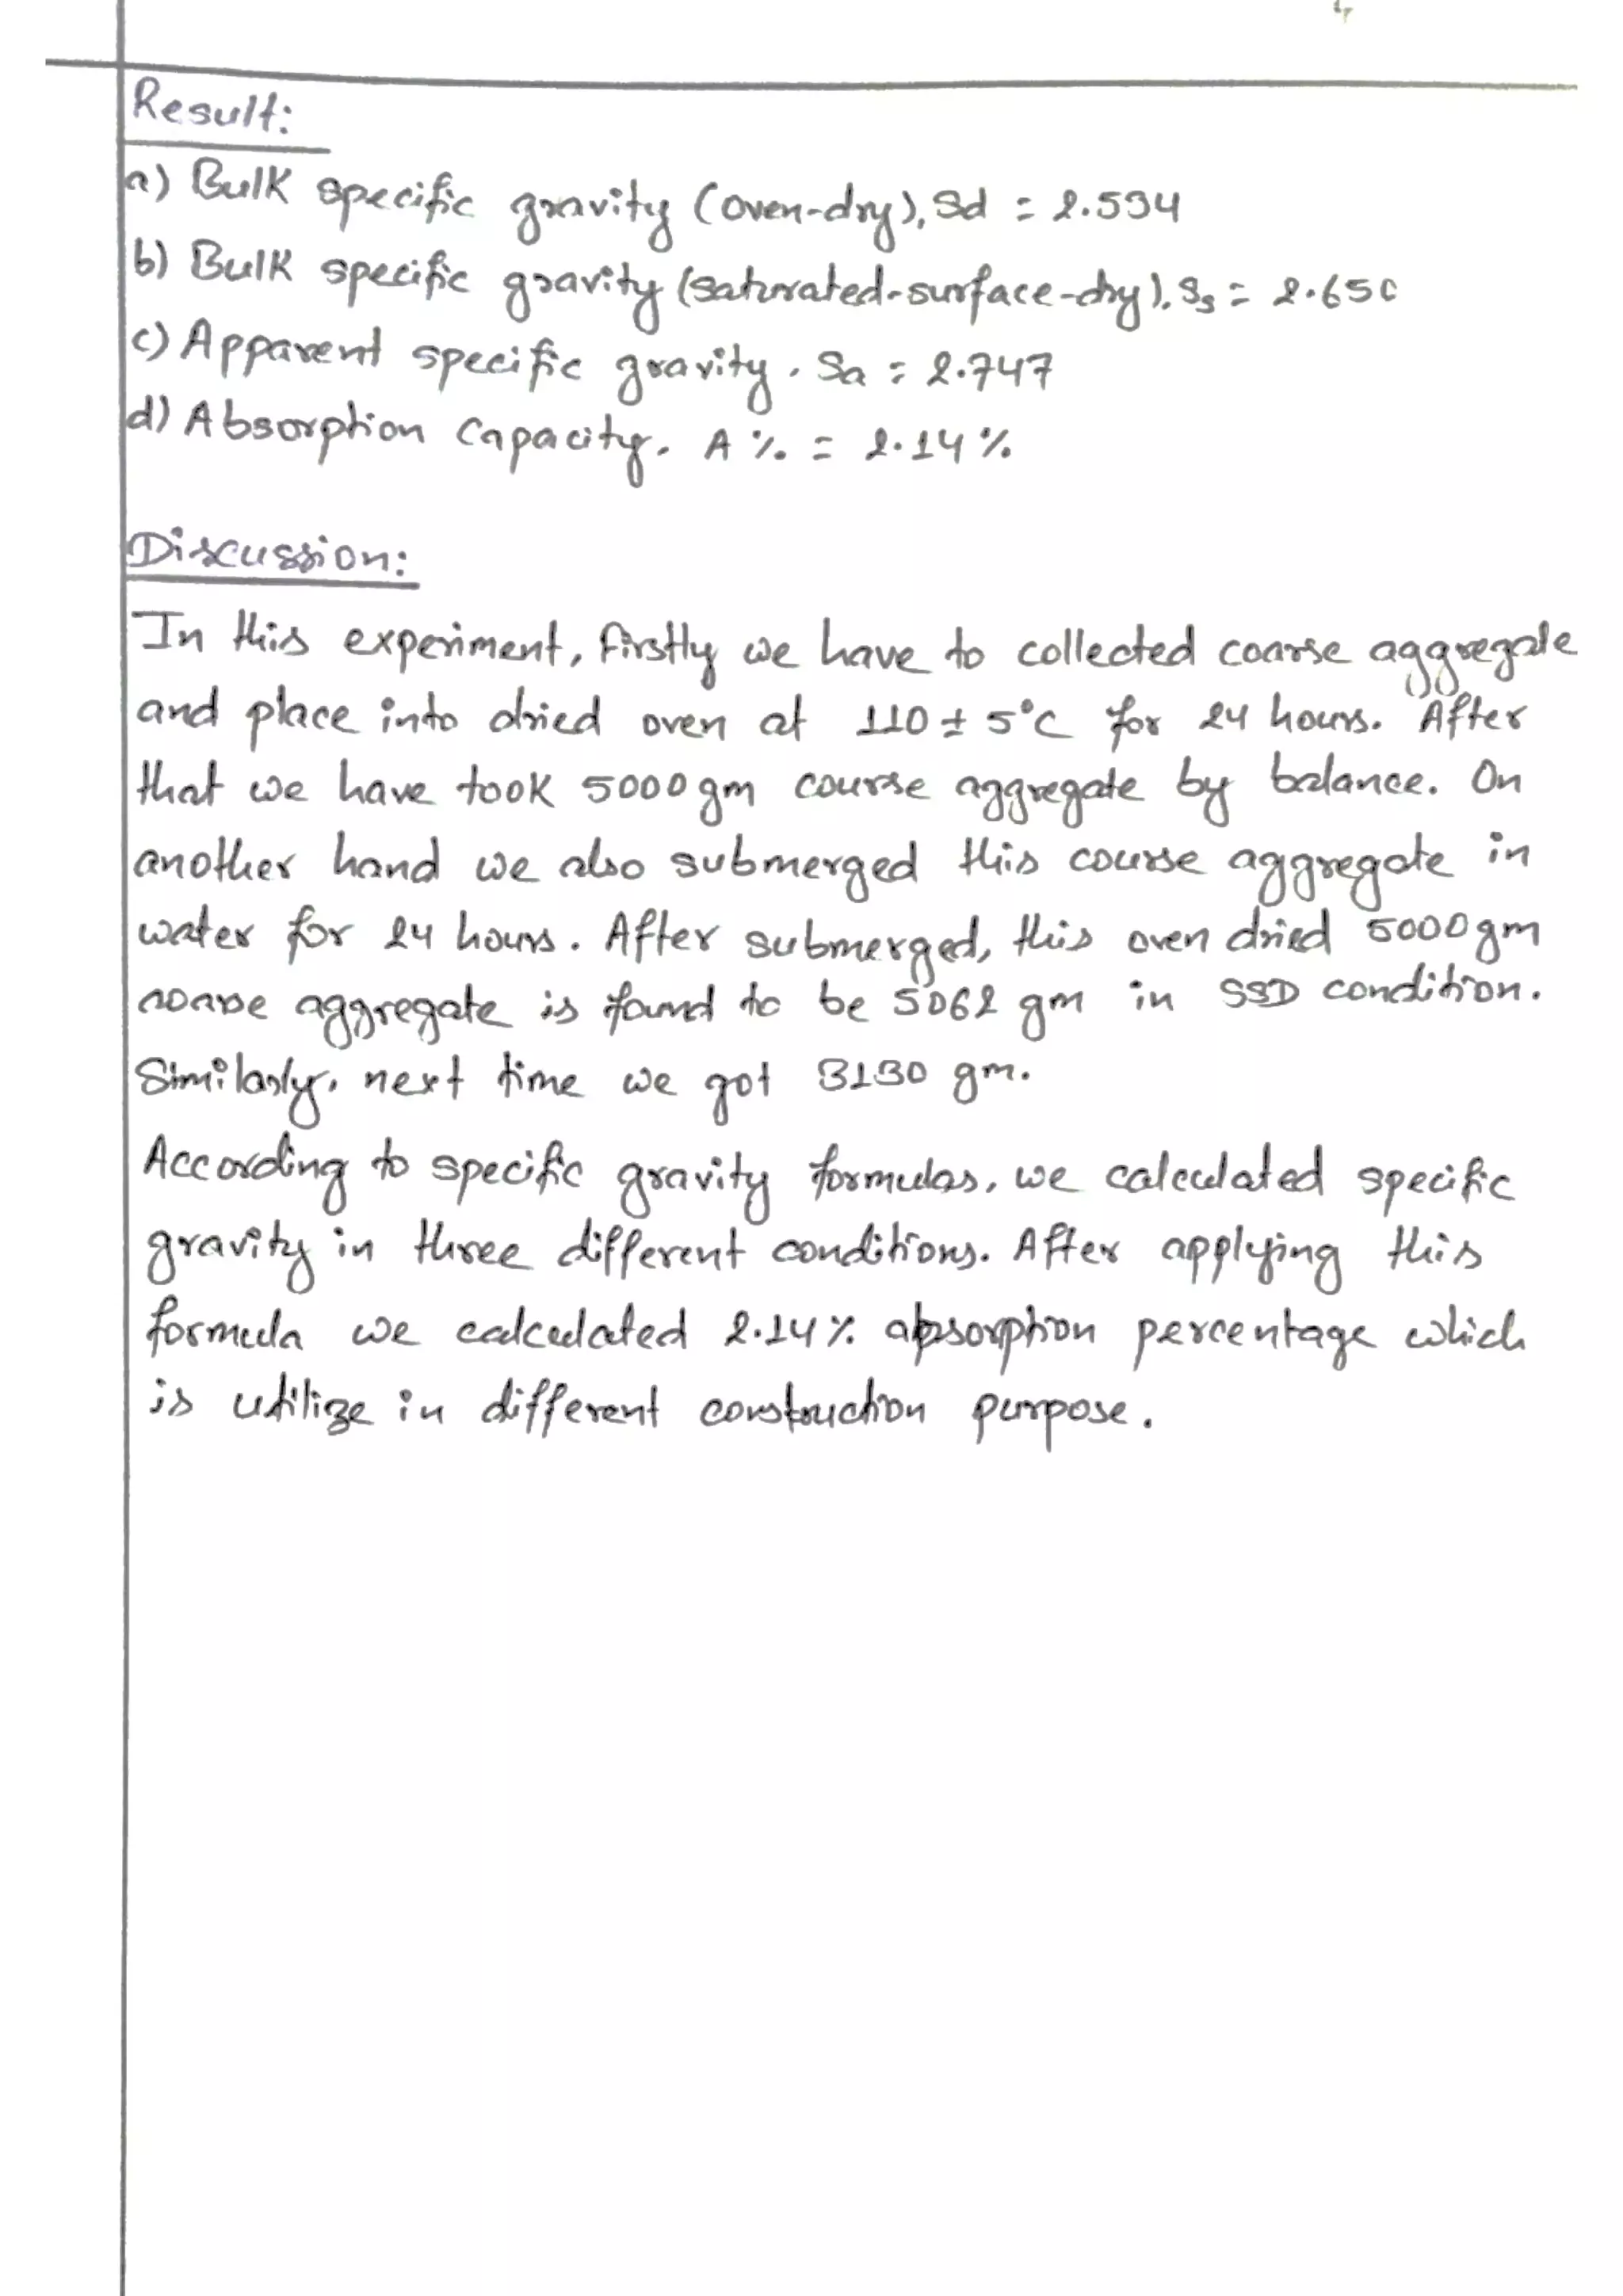 Result:
a) Bulk specific gravity (oven-dry), Sd = 2.594
b) Bulk specific gravity (saturated-surface-dry), Ss = 2.650
c) Apparent specific gravity, Sa = 2.747
d) Absorption capacity, A % = 2.14 %
Discussion:
In this experiment, firstly we have to collected coarse aggregate
and place into dried oven at 110 ± 5°C for 24 hours. After
that we have took 5000 gm course aggregate by balance. On
another hand we also submerged this course aggregate in
water for 24 hours. After submerged, this oven dried 5000 gm
aggregate is found to be 5062 gm in SSD condition.
Similarly, next time we got 3130 gm.
According to specific gravity formulas, we calculated specific
gravity in three different conditions. After applying this
formula we calculated 2.14 % absorption percentage which
is utilize in different construction purpose.